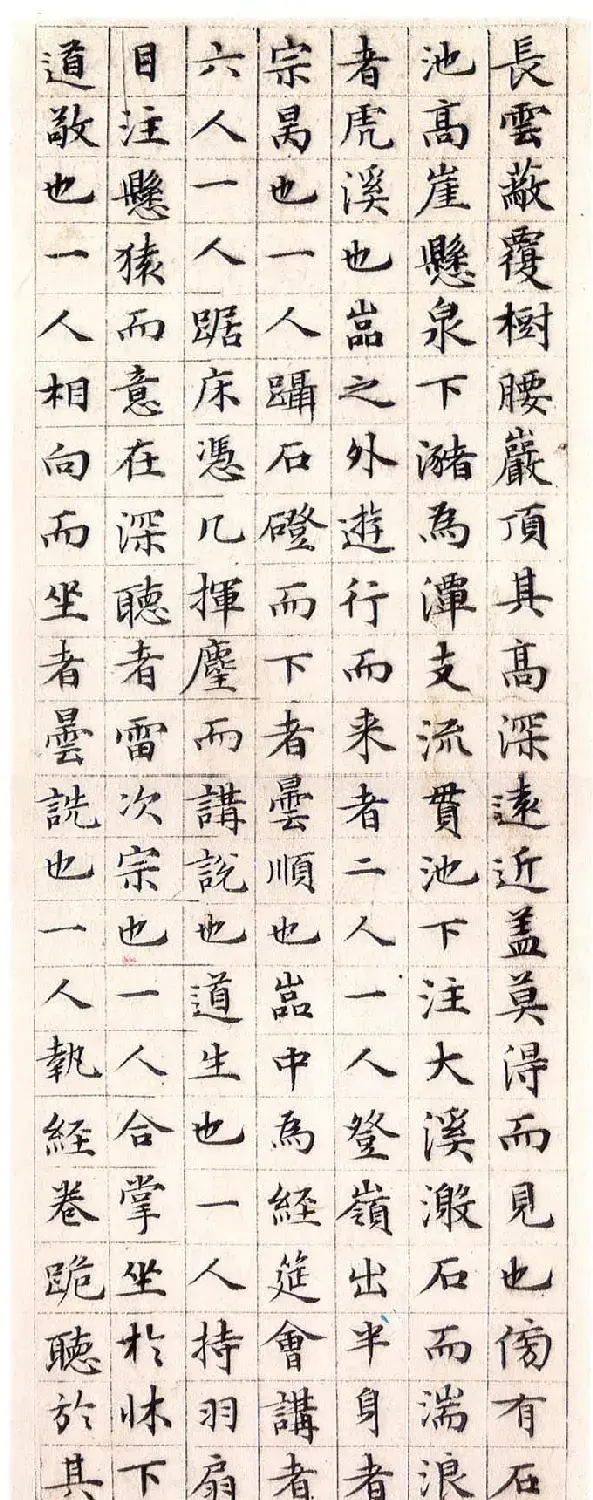 長雲蔽覆樹腰巖頂其高深遠近盖莫淂而見也傍有石
池高崖懸泉下瀦為潭支流貫池下注大溪潡石而湍浪
者虎溪也嵓之外遊行而来者二人一人登嶺出半身者
宗昺也一人躡石磴而下者曇順也嵓中為經筵會講者
六人一人踞床憑几揮麈而講說也道生也一人持羽扇
目注懸猿而意在深聽者雷次宗也一人合掌坐於牀下
道敬也一人相向而坐者曇詵也一人執經卷跪聽於其